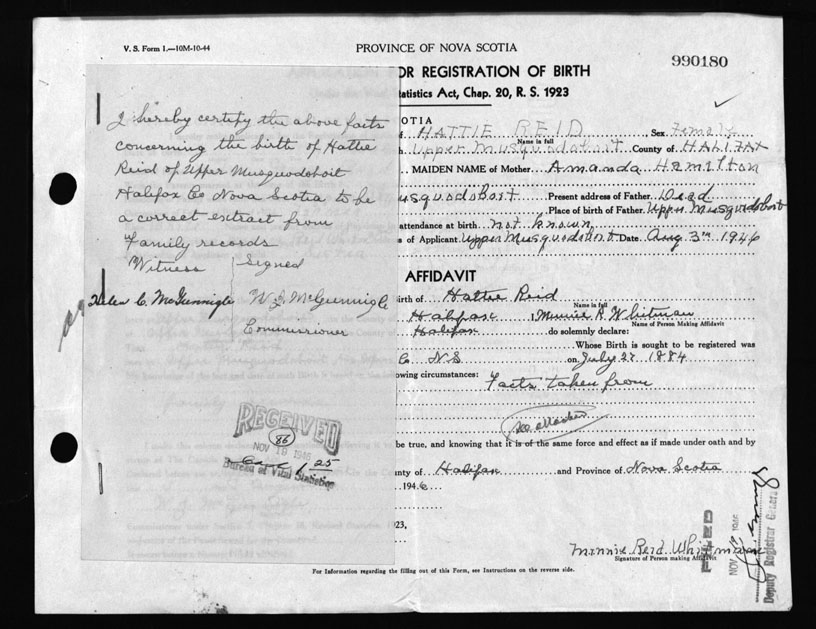 V. S. Form 1.—10M-10-44
PROVINCE OF NOVA SCOTIA
990180
OR REGISTRATION OF BIRTH
tatistics Act, Chap. 20, R. S. 1923
I hereby certify the above facts
concerning the birth of Hattie
Reid of Upper Musquodoboit
Halifax Co Nova Scotia to be
a correct extract from
Family records
Witness Signed
Helen C. McGunnigle W. J. McGunnigle
Commissioner
RECEIVED
86
NOV 19 1946
1.25
Bureau of Vital Statistics
OTIA
of HATTIE REID Sex Female
Name in full
h Upper Musquodoboit County of HALIFAX
MAIDEN NAME of Mother Amanda Hamilton
usquodoboit Present address of Father Dead
Place of birth of Father Upper Musquodoboit
attendance at birth not known
s of Applicant Upper Musquodoboit Date Aug 3rd 1946
AFFIDAVIT
Birth of Hattie Reid
Name in full
Halifax I Minnie R Whitman
Name of Person Making Affidavit
Halifax do solemnly declare:
Whose Birth is sought to be registered was
Co NS on July 27 1884
owing circumstances: Facts taken from
be true, and knowing that it is of the same force and effect as if made under oath and by
ounty of Halifax and Province of Nova Scotia
1946
923,
Minnie Reid Whitman
Signature of Person making Affidavit
FILED
NOV 1946
Deputy Registrar General
For Information regarding the filling out of this Form, see Instructions on the reverse side.